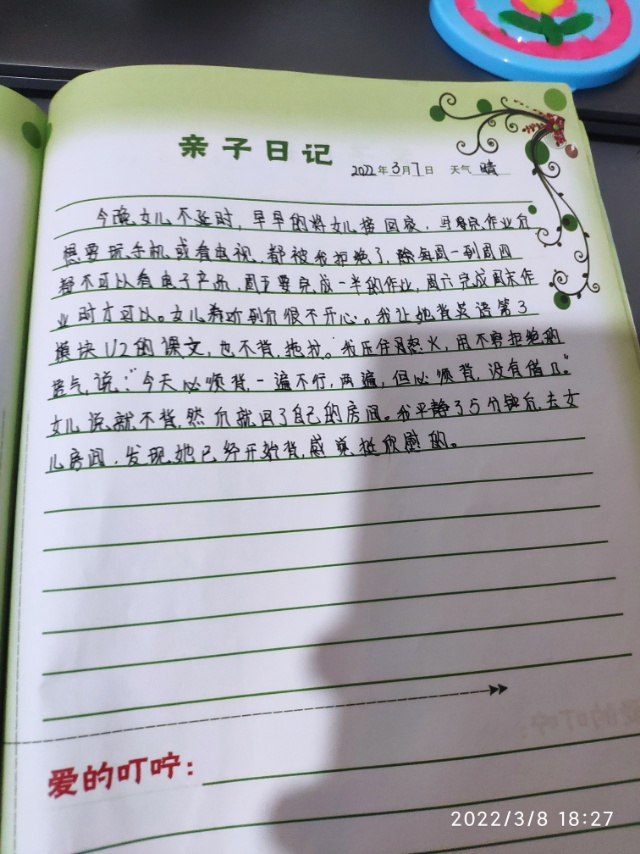 亲子日记
2022年3月7日 天气 晴
今晚女儿不延时,早早的将女儿接回家,写完作业后
想要玩手机或看电视,都被我拒绝了,除每周一到周四
都不可以看电子产品,周五要完成一半的作业,周六完成周末作
业时才可以。女儿听到后很不开心。我让她背英语第3
模块U2的课文,也不背,拖拉。我压住怒火,用不容拒绝的
语气,说:"今天必须背,一遍不行,两遍,但必须背,没有借口。"
女儿说就不背,然后就回了自己的房间。我平静了5分钟后,去女
儿房间,发现她已经开始背,感觉挺欣慰的。
爱的叮咛:
2022/3/8 18:27